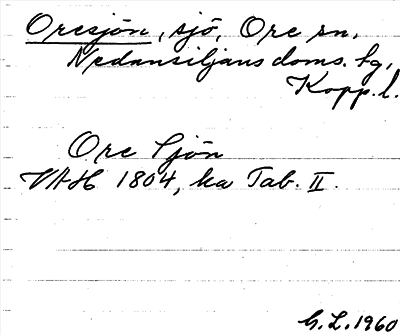 Oresjön, sjö, Ore sn,
Nedansiljans doms. hg,
Kopp. l.
Ore Sjön
VAH 1804, ka Tab. II.
G. L. 1960